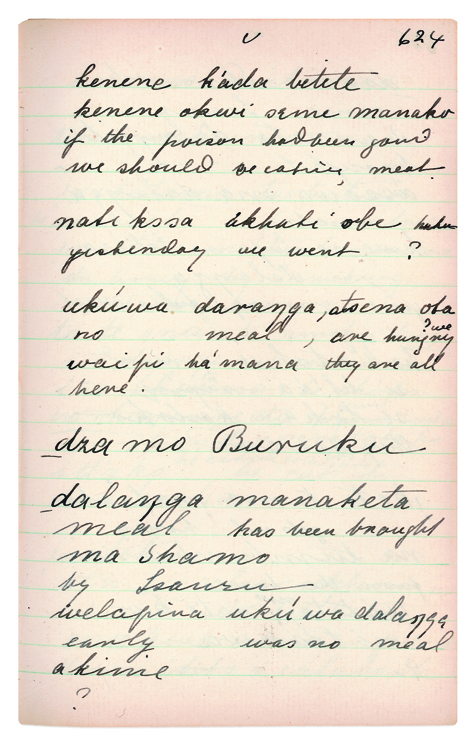 v 624
kenene káda betite
kenene okwi seme manako
if the poison had been good
we should be eating meat.
nati kssa ákhati obe
yesterday we went ?
ukúwa daraŋga, atsena oba
no meal, are hungry
?we
waipi hámana they are all
here.
dza mo Buruku
dalaŋga manaketa
meal has been brought
ma Shamo
by Isanzu
welapina ukú wa dalaŋga
early was no meal
akime
?